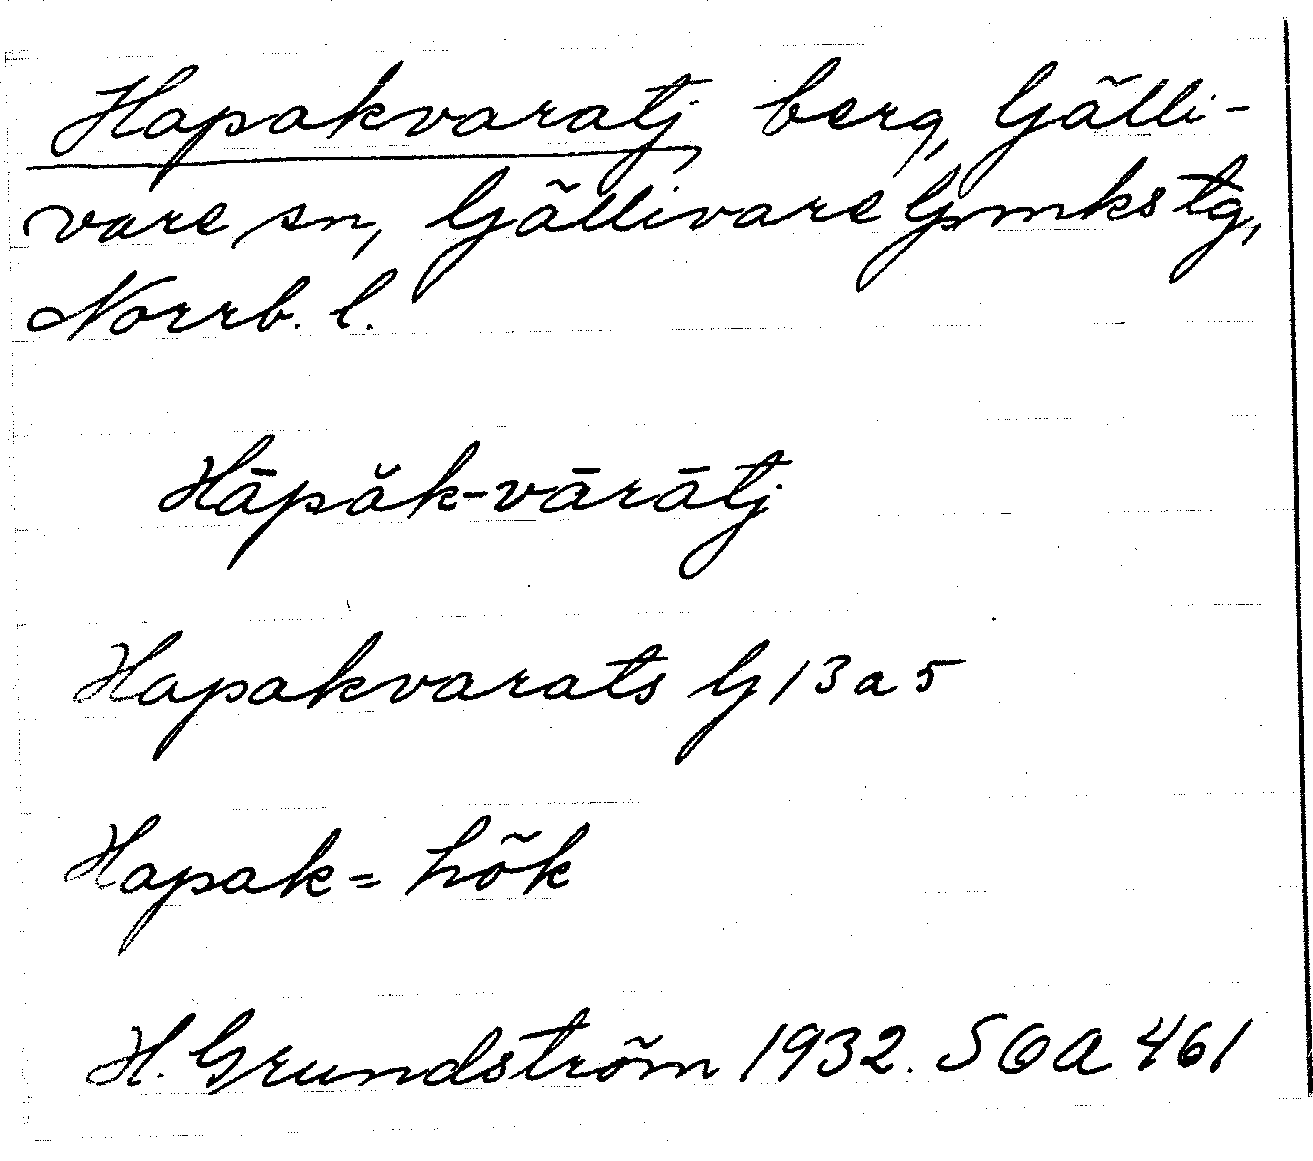 Hapakvaratj berg, Gälli-
vare sn, Gällivare Gmkstg,
Norrb. l.
Hāpăk-vārātj
Hapakvarats G13a5
Hapak = hök
H. Grundström 1932. SOA 461